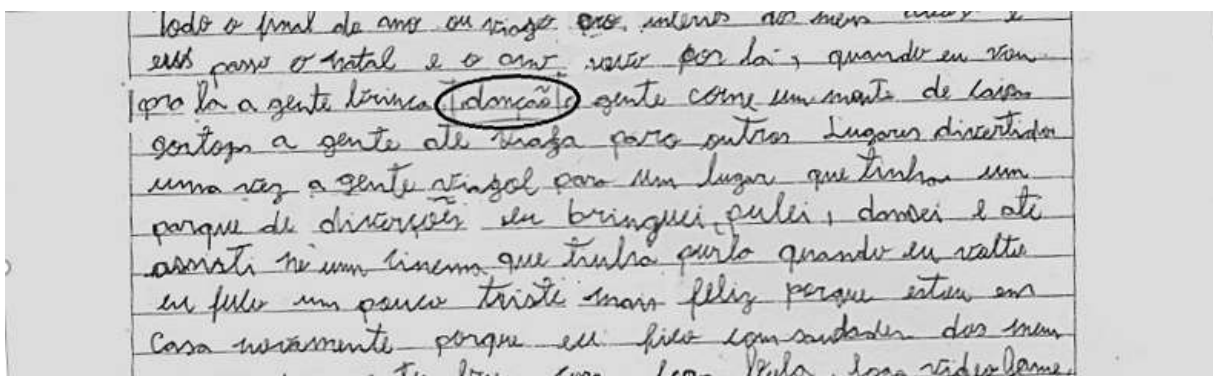 Todo o final de ano ou viago pro interio dos meus e
eu passo o natal e o ano por la, quando eu vou
pra la a gente brinca danção a gente come um monte de coisa
gostoza a gente ate viaga para outros Lugares divertidos
uma vez a gente viagol para um lugar que tinha um
parque de diverções eu bringuei, pulei, dansei e até
assisti ne um cinema que tinha purla quando eu volto
eu fico um pouco triste mais feliz porque estou em
Casa novamente porque eu fico com saudades dos meu
video Game,